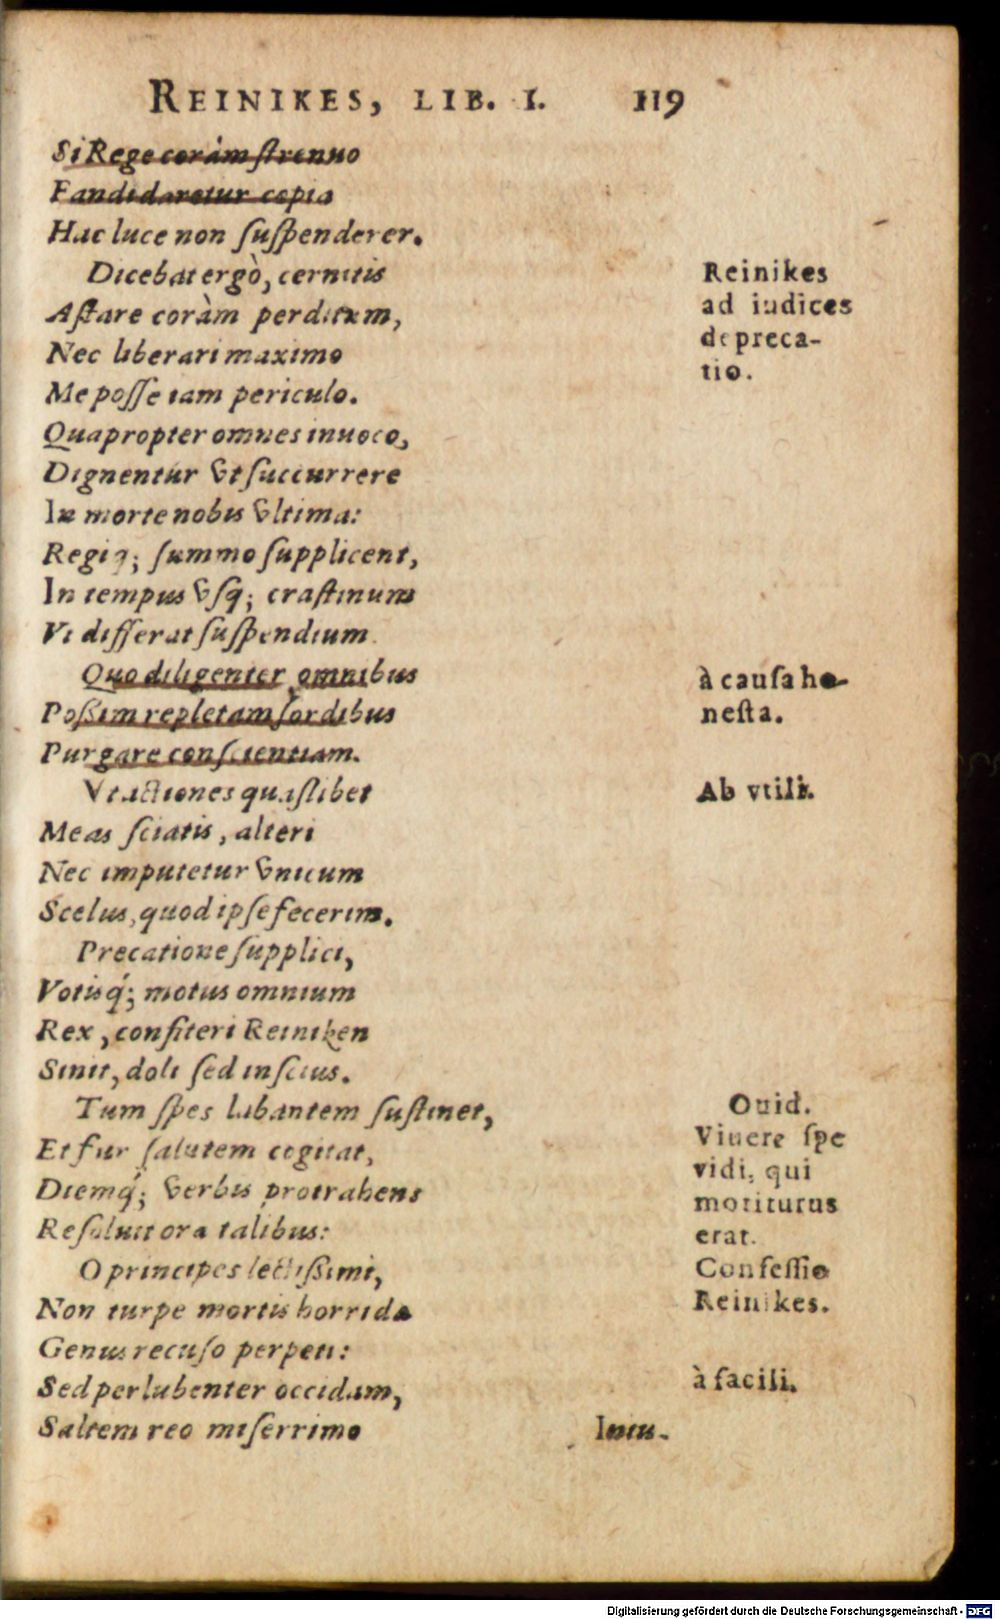 REINIKES, LIB. I. 119
Si Rege coràm ſtrenuo
Fandi daretur copia
Hac luce non ſuſpenderer.
Dicebat ergò, cernitis
Aſtare coràm perditum,
Nec liberari maximo
Me poſſe tam periculo.
Quapropter omnes inuoco,
Dignentur vt ſuccurrere
In morte nobis vltima:
Regiq; ſummo ſupplicent,
In tempus vſq; craſtinum
Vt differat ſuſpendium
Quo diligenter omnibus
Poßim repletam ſordibus
Purgare conſcientiam.
Vt actiones quaslibet
Meas ſciatis, alteri
Nec imputetur vnicum
Scelus, quod ipſe fecerim.
Precatione ſupplici,
Votisq́; motus omnium
Rex, confiteri Reiniken
Sinit, doli ſed inſcius.
Tum ſpes labantem ſuſtinet,
Et fur ſalutem cogitat,
Diemq́; verbis protrahens
Reſoluit ora talibus:
O principes lectißimi,
Non turpe mortis horrida
Genus recuſo perpeti:
Sed perlubenter occidam,
Saltem reo miſerrimo
Intu-
Reinikes
ad iudices
depreca-
tio.
à cauſa ho-
neſta.
Ab vtili.
Ouid.
Viuere ſpe
vidi, qui
moriturus
erat.
Confeſſio
Reinikes.
à facili.
Digitalisierung gefördert durch die Deutsche Forschungsgemeinschaft - DFG